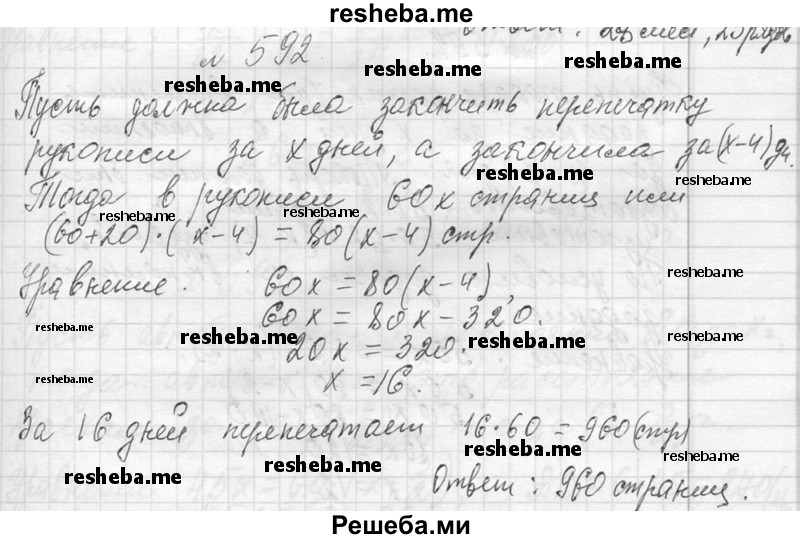 resheba.me
Ответ: 28 мест, 20 рядов
№ 592.
resheba.me resheba.me
Пусть должна была закончить перепечатку
рукописи за x дней, а закончила за (x-4) дн.
Тогда в рукописи 60x страниц или
resheba.me resheba.me
(60+20)·(x-4) = 80(x-4) стр.
resheba.me
Уравнение. 60x = 80(x-4),
60x = 80x - 320.
resheba.me resheba.me resheba.me resheba.me
20x = 320.
x = 16.
resheba.me
За 16 дней перепечатает 16·60 = 960 (стр)
resheba.me resheba.me resheba.me
Ответ: 960 страниц.
Решеба.ми